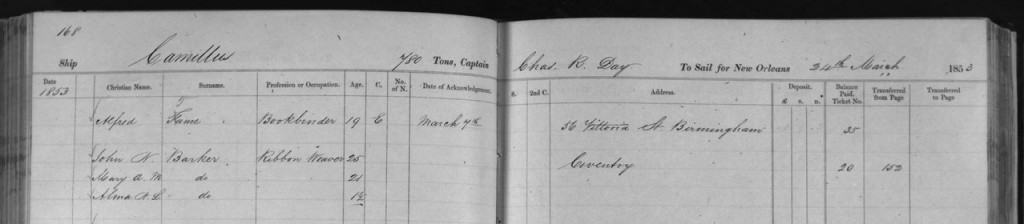 168
Ship Camillus 780 Tons, Captain Chas. R. Day To Sail for New Orleans 24th March 1853
Date Christian Name. Surname. Profession or Occupation. Age. C. No. of N. Date of Acknowledgement. S. 2nd C. Address. Deposit. £ s. D. Balance Paid. Ticket No. Transferred from Page Transferred to Page
1853
Alfred Fame Bookbinder 19 C March 7th 56 Vittoria St. Birmingham 35
John W. Barker Ribbon Weaver 25 Coventry 20 152
Mary A. M. do 21
Alma A. L. do 1½